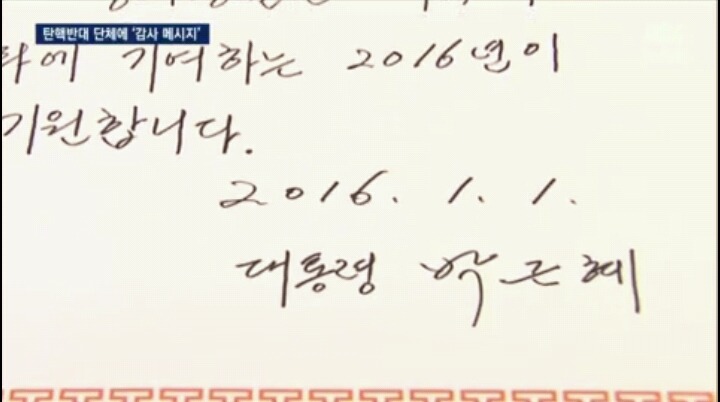 탄핵반대 단체에 '감사 메시지'
에 기여하는 2016년이
기원합니다.
2016. 1. 1.
대통령 박근혜